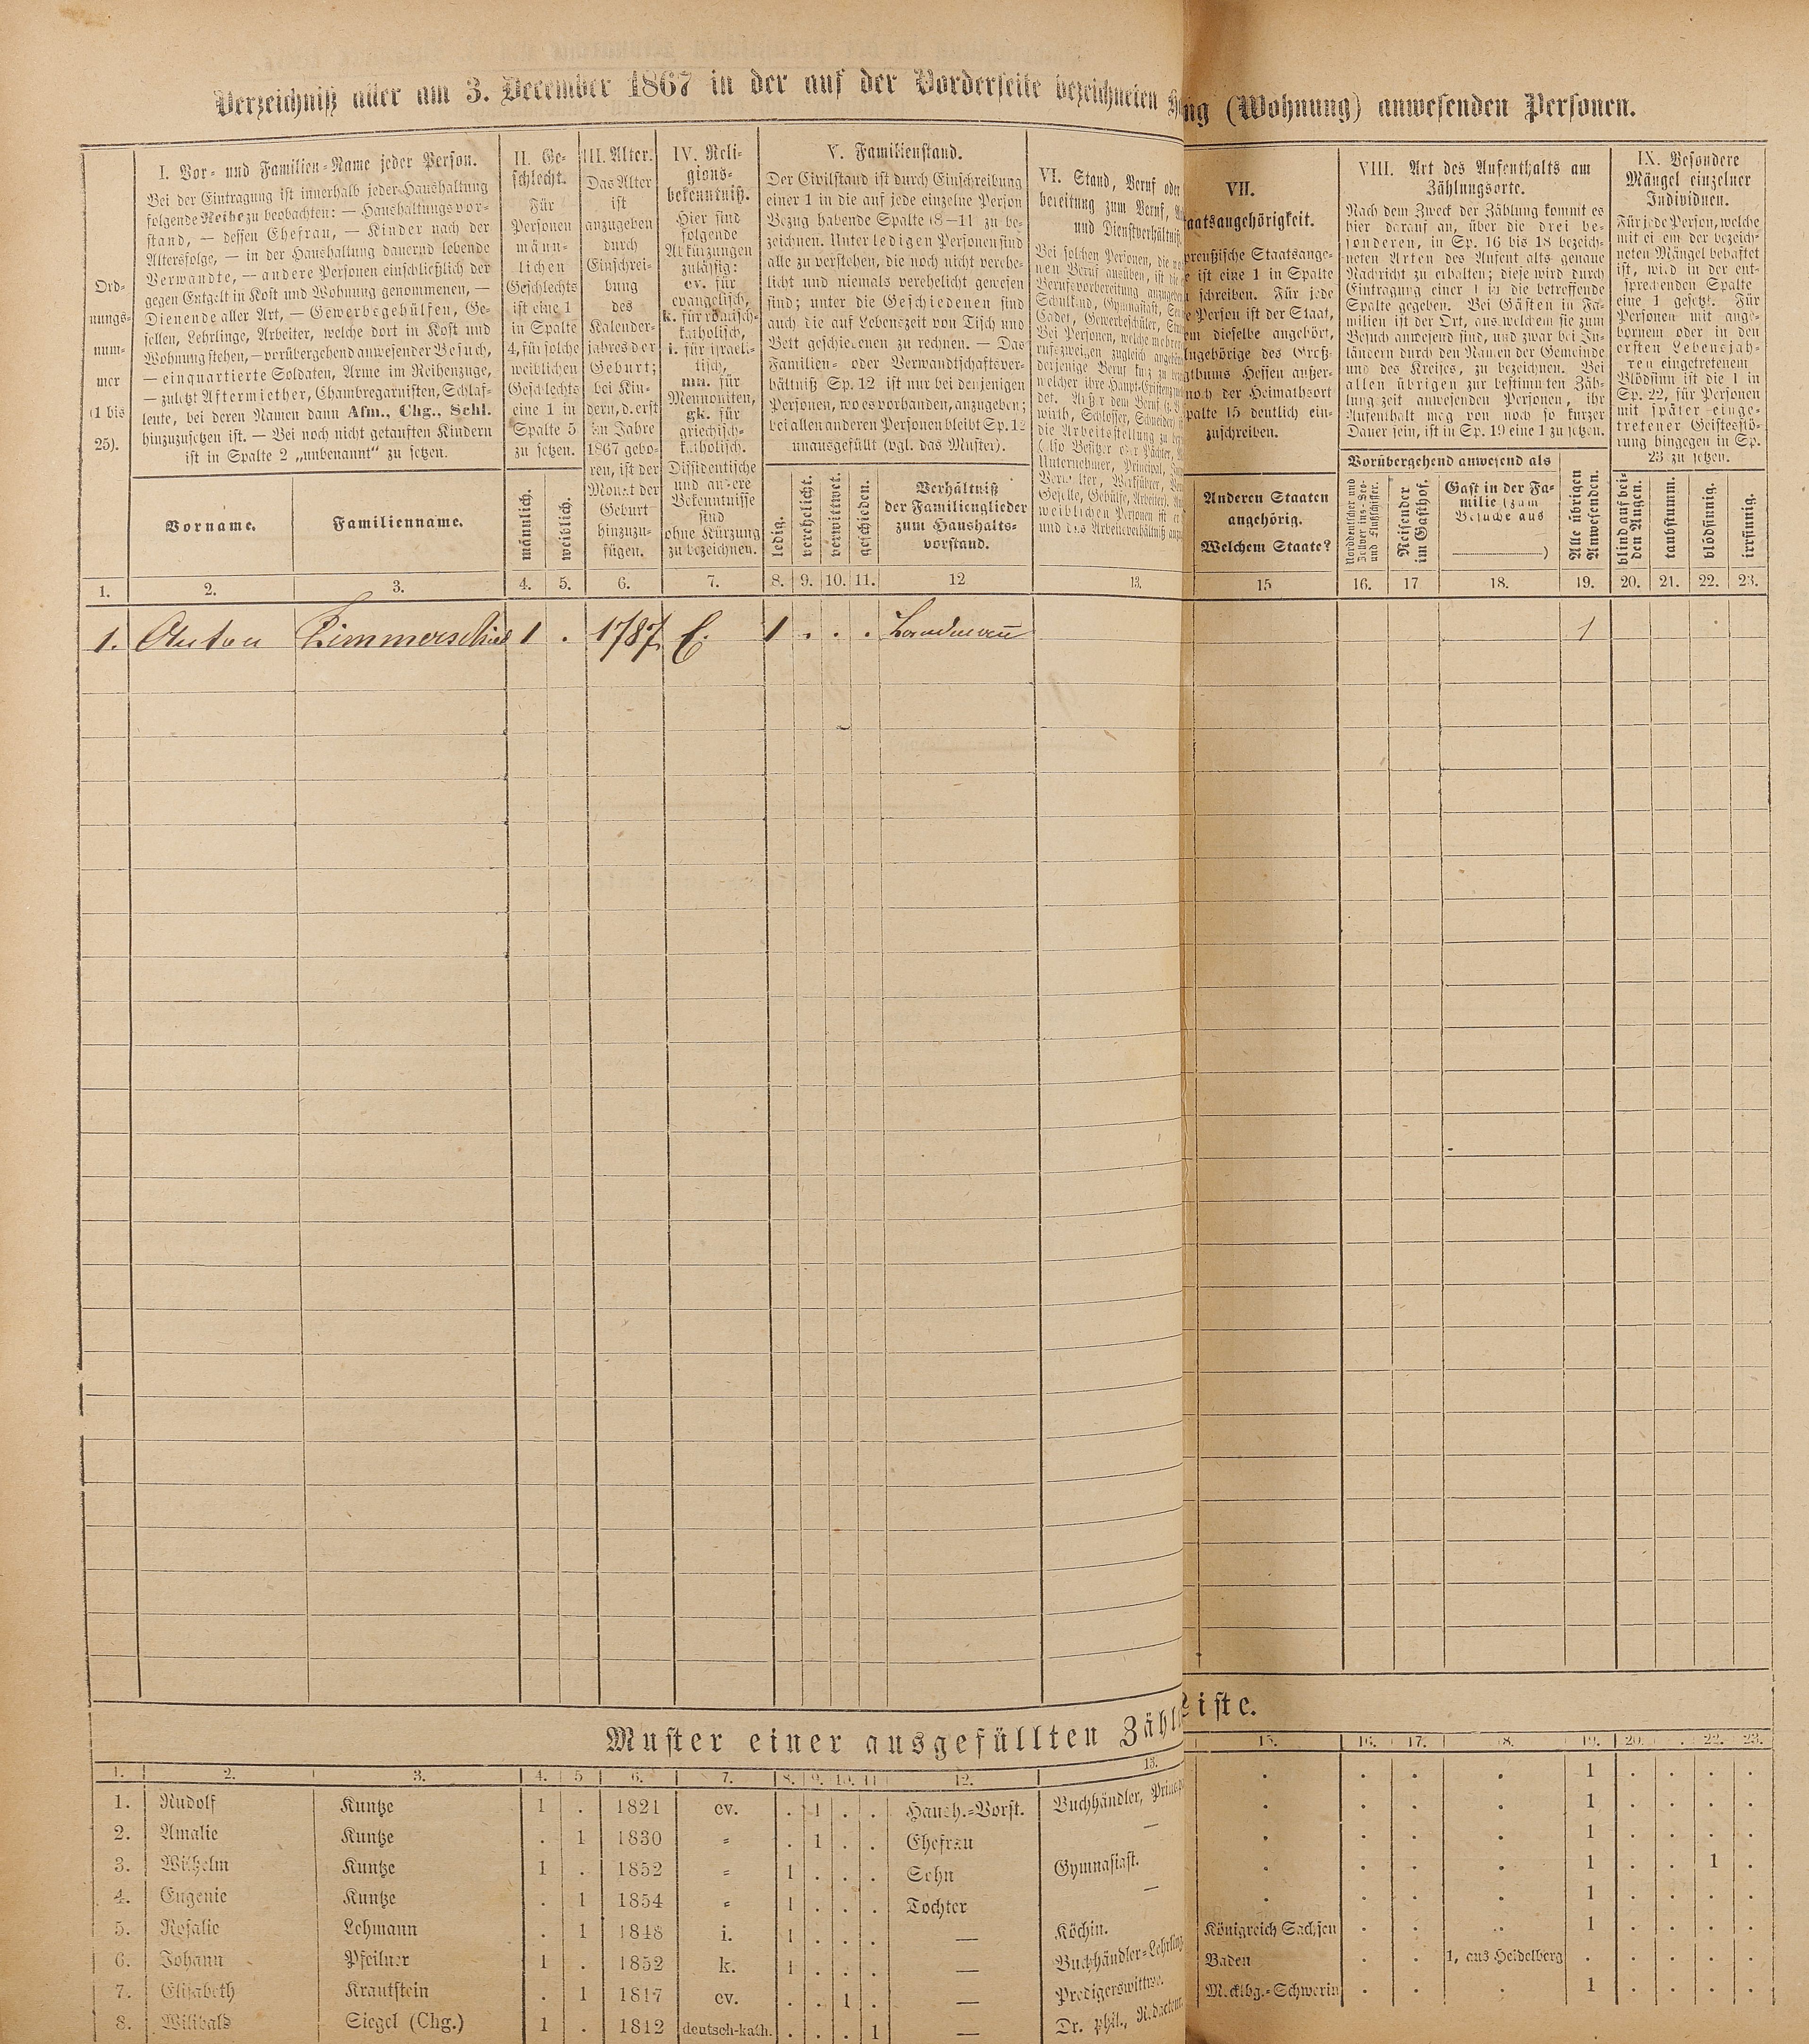 Verzeichniß aller am 3. December 1867 in der auf der Vorderseite bezeichneten
ng (Wohnung) anwesenden Personen.
Ord-
nungs-
num-
mer
(1 bis
25).
I. Vor- und Familien-Name jeder Person.
Bei der Eintragung ist innerhalb jeder Haushaltung
folgende Reihe zu beobachten: — Haushaltungsvor-
stand, — dessen Ehefrau, — Kinder nach der
Altersfolge, — in der Haushaltung dauernd lebende
Verwandte, — andere Personen einschließlich der
gegen Entgelt in Kost und Wohnung genommenen, —
Dienende aller Art, — Gewerbegehülfen, Ge-
sellen, Lehrlinge, Arbeiter, welche dort in Kost und
Wohnung stehen, — vorübergehend anwesender Besuch,
— einquartierte Soldaten, Arme im Reihenzuge,
— zuletzt Aftermiether, Chambregarnisten, Schlaf-
leute, bei deren Namen dann Afm., Chg., Schl.
hinzuzusetzen ist. — Bei noch nicht getauften Kindern
ist in Spalte 2 „unbenannt“ zu setzen.
Vorname.
Familienname.
II. Ge-
schlecht.
Für
Personen
männ-
lichen
Geschlechts
ist eine 1
in Spalte
4, für solche
weiblichen
Geschlechts
eine 1 in
Spalte 5
zu setzen.
männlich.
weiblich.
III. Alter.
Das Alter
ist
anzugeben
durch
Einschrei-
bung
des
Kalender-
jahres der
Geburt;
bei Kin-
dern, d. erst
im Jahre
1867 gebo-
ren, ist der
Monat der
Geburt
hinzuzu-
fügen.
IV. Reli-
gions-
bekenntniß.
Hier sind
folgende
Abkürzungen
zulässig:
ev. für
evangelisch,
k. für römisch-
katholisch,
i. für israeli-
tisch,
mn. für
Mennoniten,
gk. für
griechisch-
katholisch.
Dissidentische
und andere
Bekenntnisse
sind
ohne Kürzung
zu bezeichnen.
V. Familienstand.
Der Civilstand ist durch Einschreibung
einer 1 in die auf jede einzelne Person
Bezug habende Spalte (8—11 zu be-
zeichnen. Unter ledigen Personen sind
alle zu verstehen, die noch nicht verehe-
licht und niemals verehelicht gewesen
sind; unter die Geschiedenen sind
auch die auf Lebenszeit von Tisch und
Bett geschiedenen zu rechnen. — Das
Familien- oder Verwandtschaftsver-
hältniß Sp. 12 ist nur bei denjenigen
Personen, wo es vorhanden, anzugeben;
bei allen anderen Personen bleibt Sp. 12
unausgefüllt (vgl. das Muster).
ledig.
verehelicht.
verwittwet.
geschieden.
Verhältniß
der Familienglieder
zum Haushalts-
vorstand.
VI. Stand, Beruf oder
bereitung zum Beruf,
und Dienstverhältniß.
Bei solchen Personen, die
VII.
taatsangehörigkeit.
preußische Staatsange-
ist eine 1 in Spalte
schreiben. Für jede
Person ist der Staat,
dieselbe angehört,
Angehörige des Groß-
Hessen außer-
noch der Heimathsort
palte 15 deutlich ein-
zuschreiben.
Anderen Staaten
angehörig.
Welchem Staate?
VIII. Art des Aufenthalts am
Zählungsorte.
Nach dem Zweck der Zählung kommt es
hier darauf an, über die drei be-
sonderen, in Sp. 16 bis 18 bezeich-
neten Arten des Aufenthalts genaue
Nachricht zu erhalten; diese wird durch
Eintragung einer 1 in die betreffende
Spalte gegeben. Bei Gästen in Fa-
milien ist der Ort, aus welchem sie zum
Besuch anwesend sind, und zwar bei In-
ländern durch den Namen der Gemeinde
und des Kreises, zu bezeichnen. Bei
allen übrigen zur bestimmten Zäh-
lung zeit anwesenden Personen, ihr
Aufenthalt mag von noch so kurzer
Dauer sein, ist in Sp. 19 eine 1 zu setzen.
Vorübergehend anwesend als
Norddeutscher und
Zollver ins-See-
und Flußschiffer.
Reisender
im Gasthof.
Gast in der Fa-
milie (zum
Besuche aus
)
Alle übrigen
Anwesenden.
IX. Besondere
Mängel einzelner
Individuen.
Für jede Person, welche
mit einem der bezeich-
neten Mängel behaftet
ist, wird in der ent-
sprechenden Spalte
eine 1 gesetzt. Für
Personen mit ange-
bornem oder in den
ersten Lebensjah-
ren eingetretenem
Blödsinn ist die 1 in
Sp. 22, für Personen
mit später einge-
tretener Geistesstö-
rung hingegen in Sp.
23 zu setzen.
blind auf bei-
den Augen.
taubstumm.
blödsinnig.
irrsinnig.
1. 2. 3. 4. 5. 6. 7. 8. 9. 10. 11. 12 13. 15 16. 17 18. 19. 20. 21. 22. 23.
1. Anton Zimmerschied 1 . 1787 1 . . . Landmann 1
Muster einer ausgefüllten Zähl
Liste.
1. 2. 3. 4. 5 6. 7. 8. 9. 10. 11 12. 13. 15. 16. 17. 18. 19. 20. 22. 23.
1. Rudolf Kuntze 1 . 1821 ev. . 1 . . Haush.-Vorst. Buchhändler, . . . . 1 . . . .
2. Amalie Kuntze . 1 1830 = . 1 . . Ehefrau — . . . . 1 . . . .
3. Wilhelm Kuntze 1 . 1852 = 1 . . . Sohn Gymnasiast. . . . . 1 . . 1 .
4. Eugenie Kuntze . 1 1854 = 1 . . . Tochter — . . . . 1 . . . .
5. Rosalie Lehmann . 1 1848 i. 1 . . . — Köchin. Königreich Sachsen . . . 1 . . . .
6. Johann Pfeilner 1 . 1852 k. 1 . . . — Buchhändler-Lehrling Baden . . 1, aus Heidelberg . . . . .
7. Elisabeth Krautstein . 1 1817 ev. . . 1 . — Predigerswittwe. Mecklbg.-Schwerin . . . 1 . . . .
8. Wilibald Siegel (Chg.) 1 . 1812 deutsch-kath. . . . 1 — Dr. phil., Redacteur.